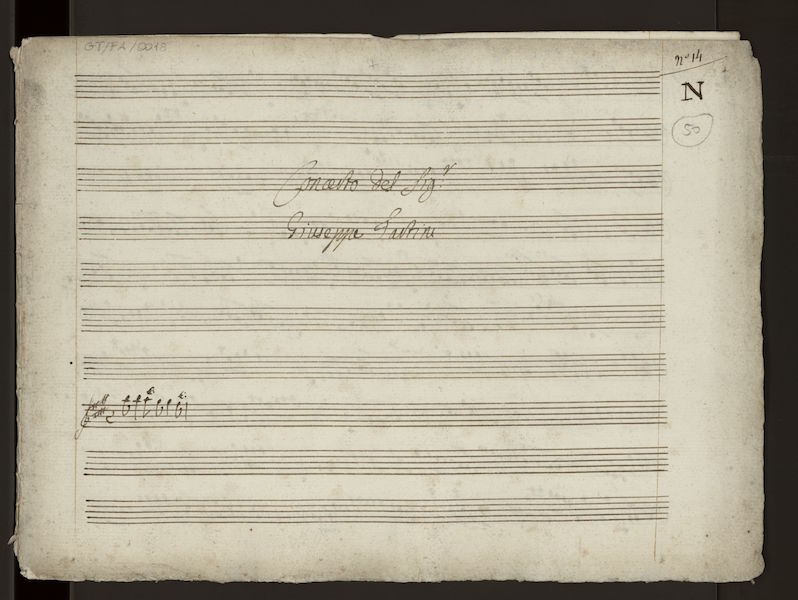 GT/FA/0018
nº 14
N
50
Concerto del Sig.r
Giuseppe Tartini